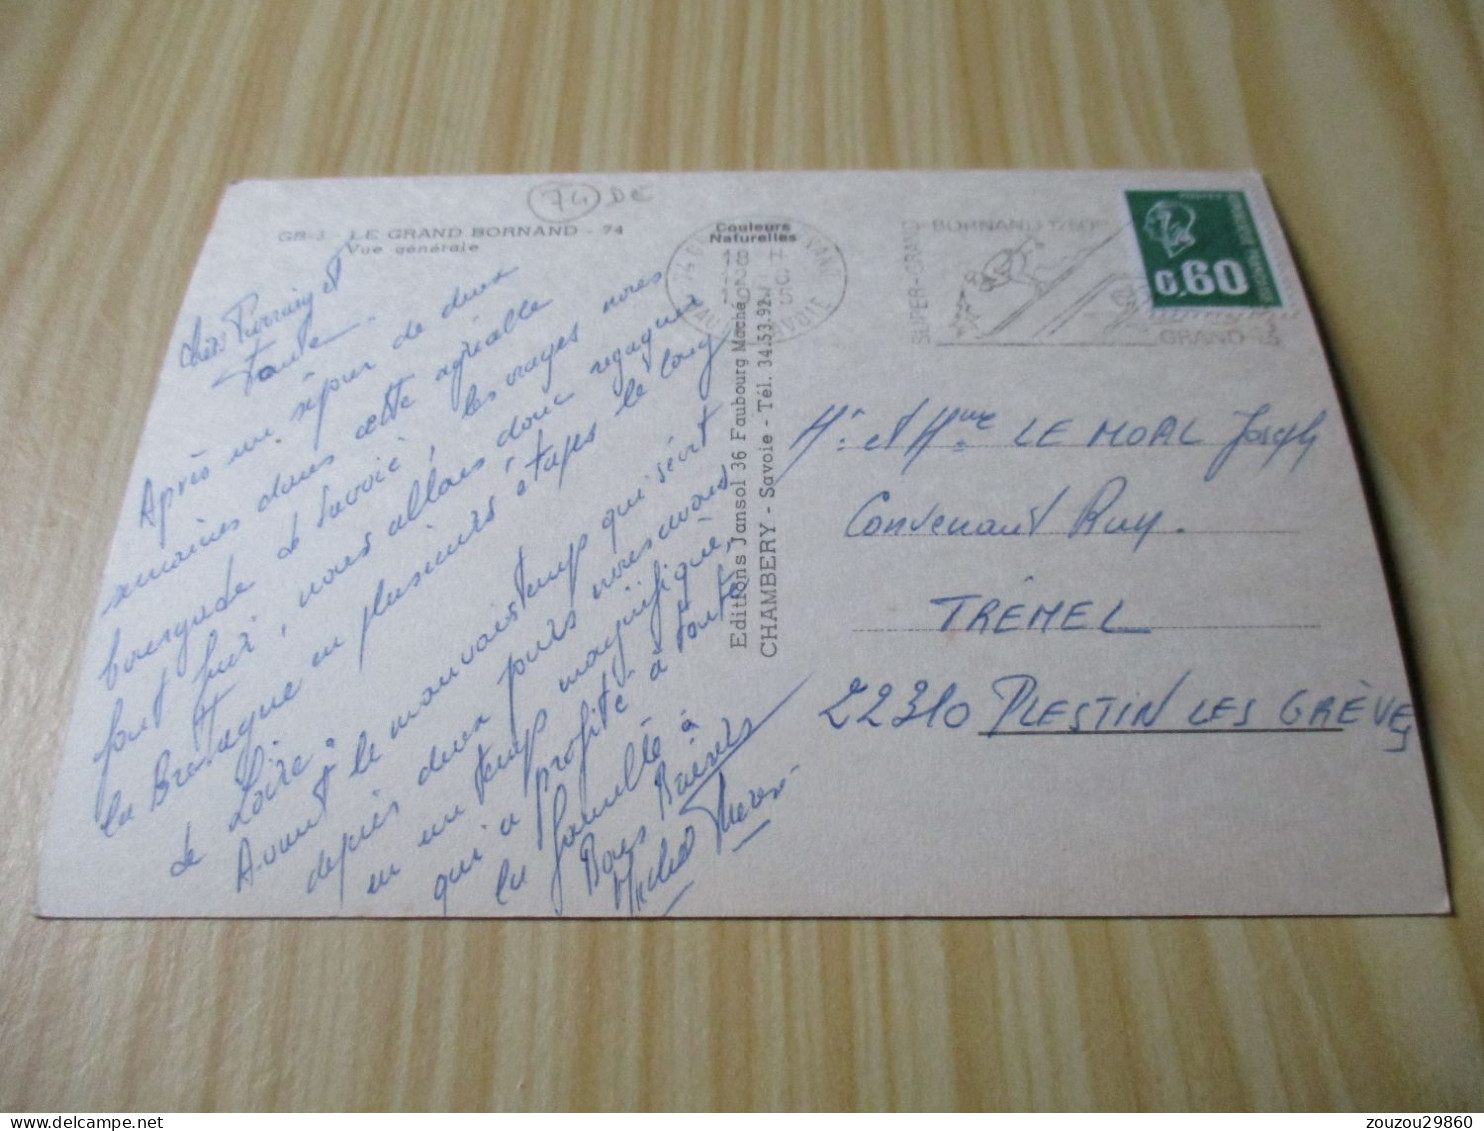 74 DE
GB-3 - LE GRAND BORNAND - 74
Vue générale
Couleurs
Naturelles
Chers Parrain et
Tante.
Après un séjour de deux
semaines dans cette agréable
bourgade de Savoie, les orages nous
font fuir, nous allons donc regagner
la Bretagne en plusieurs étapes le long
de Loire.
Avant le mauvais temps qui sévit
depuis deux jours nous avons
eu un temps magnifique,
qui a profité à toute
la famille à
Bons Baisers
Michel
Editions Jansol 36 Faubourg Mache
CHAMBERY - Savoie - Tél. 34.53.92
18 H
HAUTE SAVOIE
SUPER-GRAND
BORNAND
GRAND
0,60
Mr et Mme LE MOAL Joseph
Convenant Ruy.
TRÉMEL
22310 PLESTIN LES GRÈVES
zouzou29860